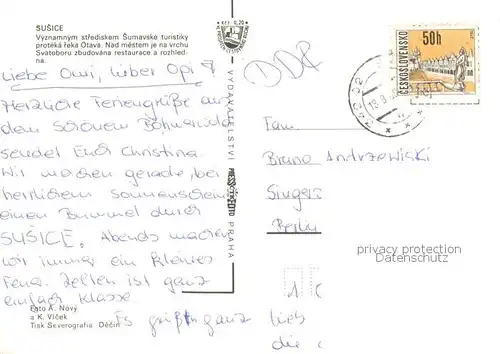 SUŠICE
Významným střediskem Šumavské turistiky
protéká řeka Otava. Nad městem je na vrchu
Svatoboru zbudována restaurace a rozhled-
na.
Liebe Omi, lieber Opi!
Herzliche Feriengrüße aus
dem schönen Böhmerwald
sendet Euch Christina.
Wir machen gerade, bei
herrlichem Sonnenschein
einen Bummel durch
SUŠICE. Abends machen
wir immer ein kleines
Feuer. Zelten ist ganz
einfach Klasse
Es grüßt ganz
lieb
die
Foto A. Nový
a K. Vlček
Tisk Severografia Děčín
Kčs 0,70
VYDAVATELSTVÍ
PRESSFOTO
PRAHA
DDR
342 02
ČESKOSLOVENSKO
50h
TELČ
Fam.
Bruno Andrzewiski
Singer
Berlin
1
privacy protection
Datenschutz